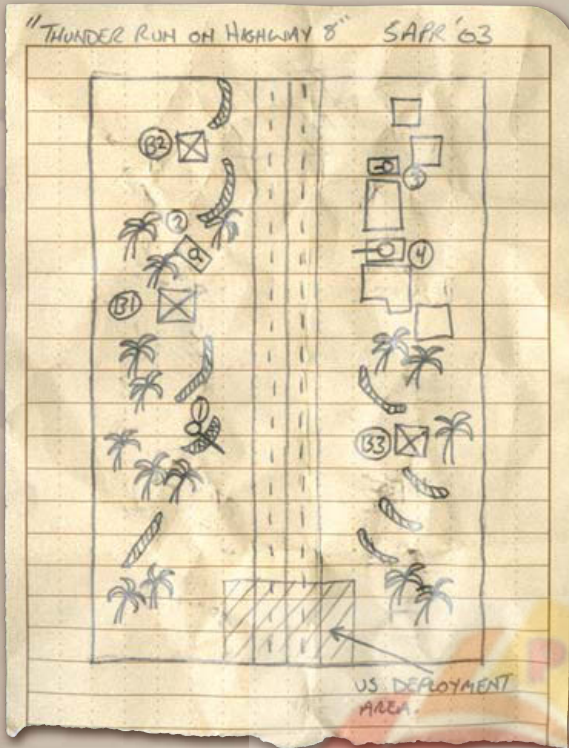 "THUNDER RUN ON HIGHWAY 8" 5 APR '03
B2
3
2
4
B1
1
B3
US DEPLOYMENT
AREA.
P